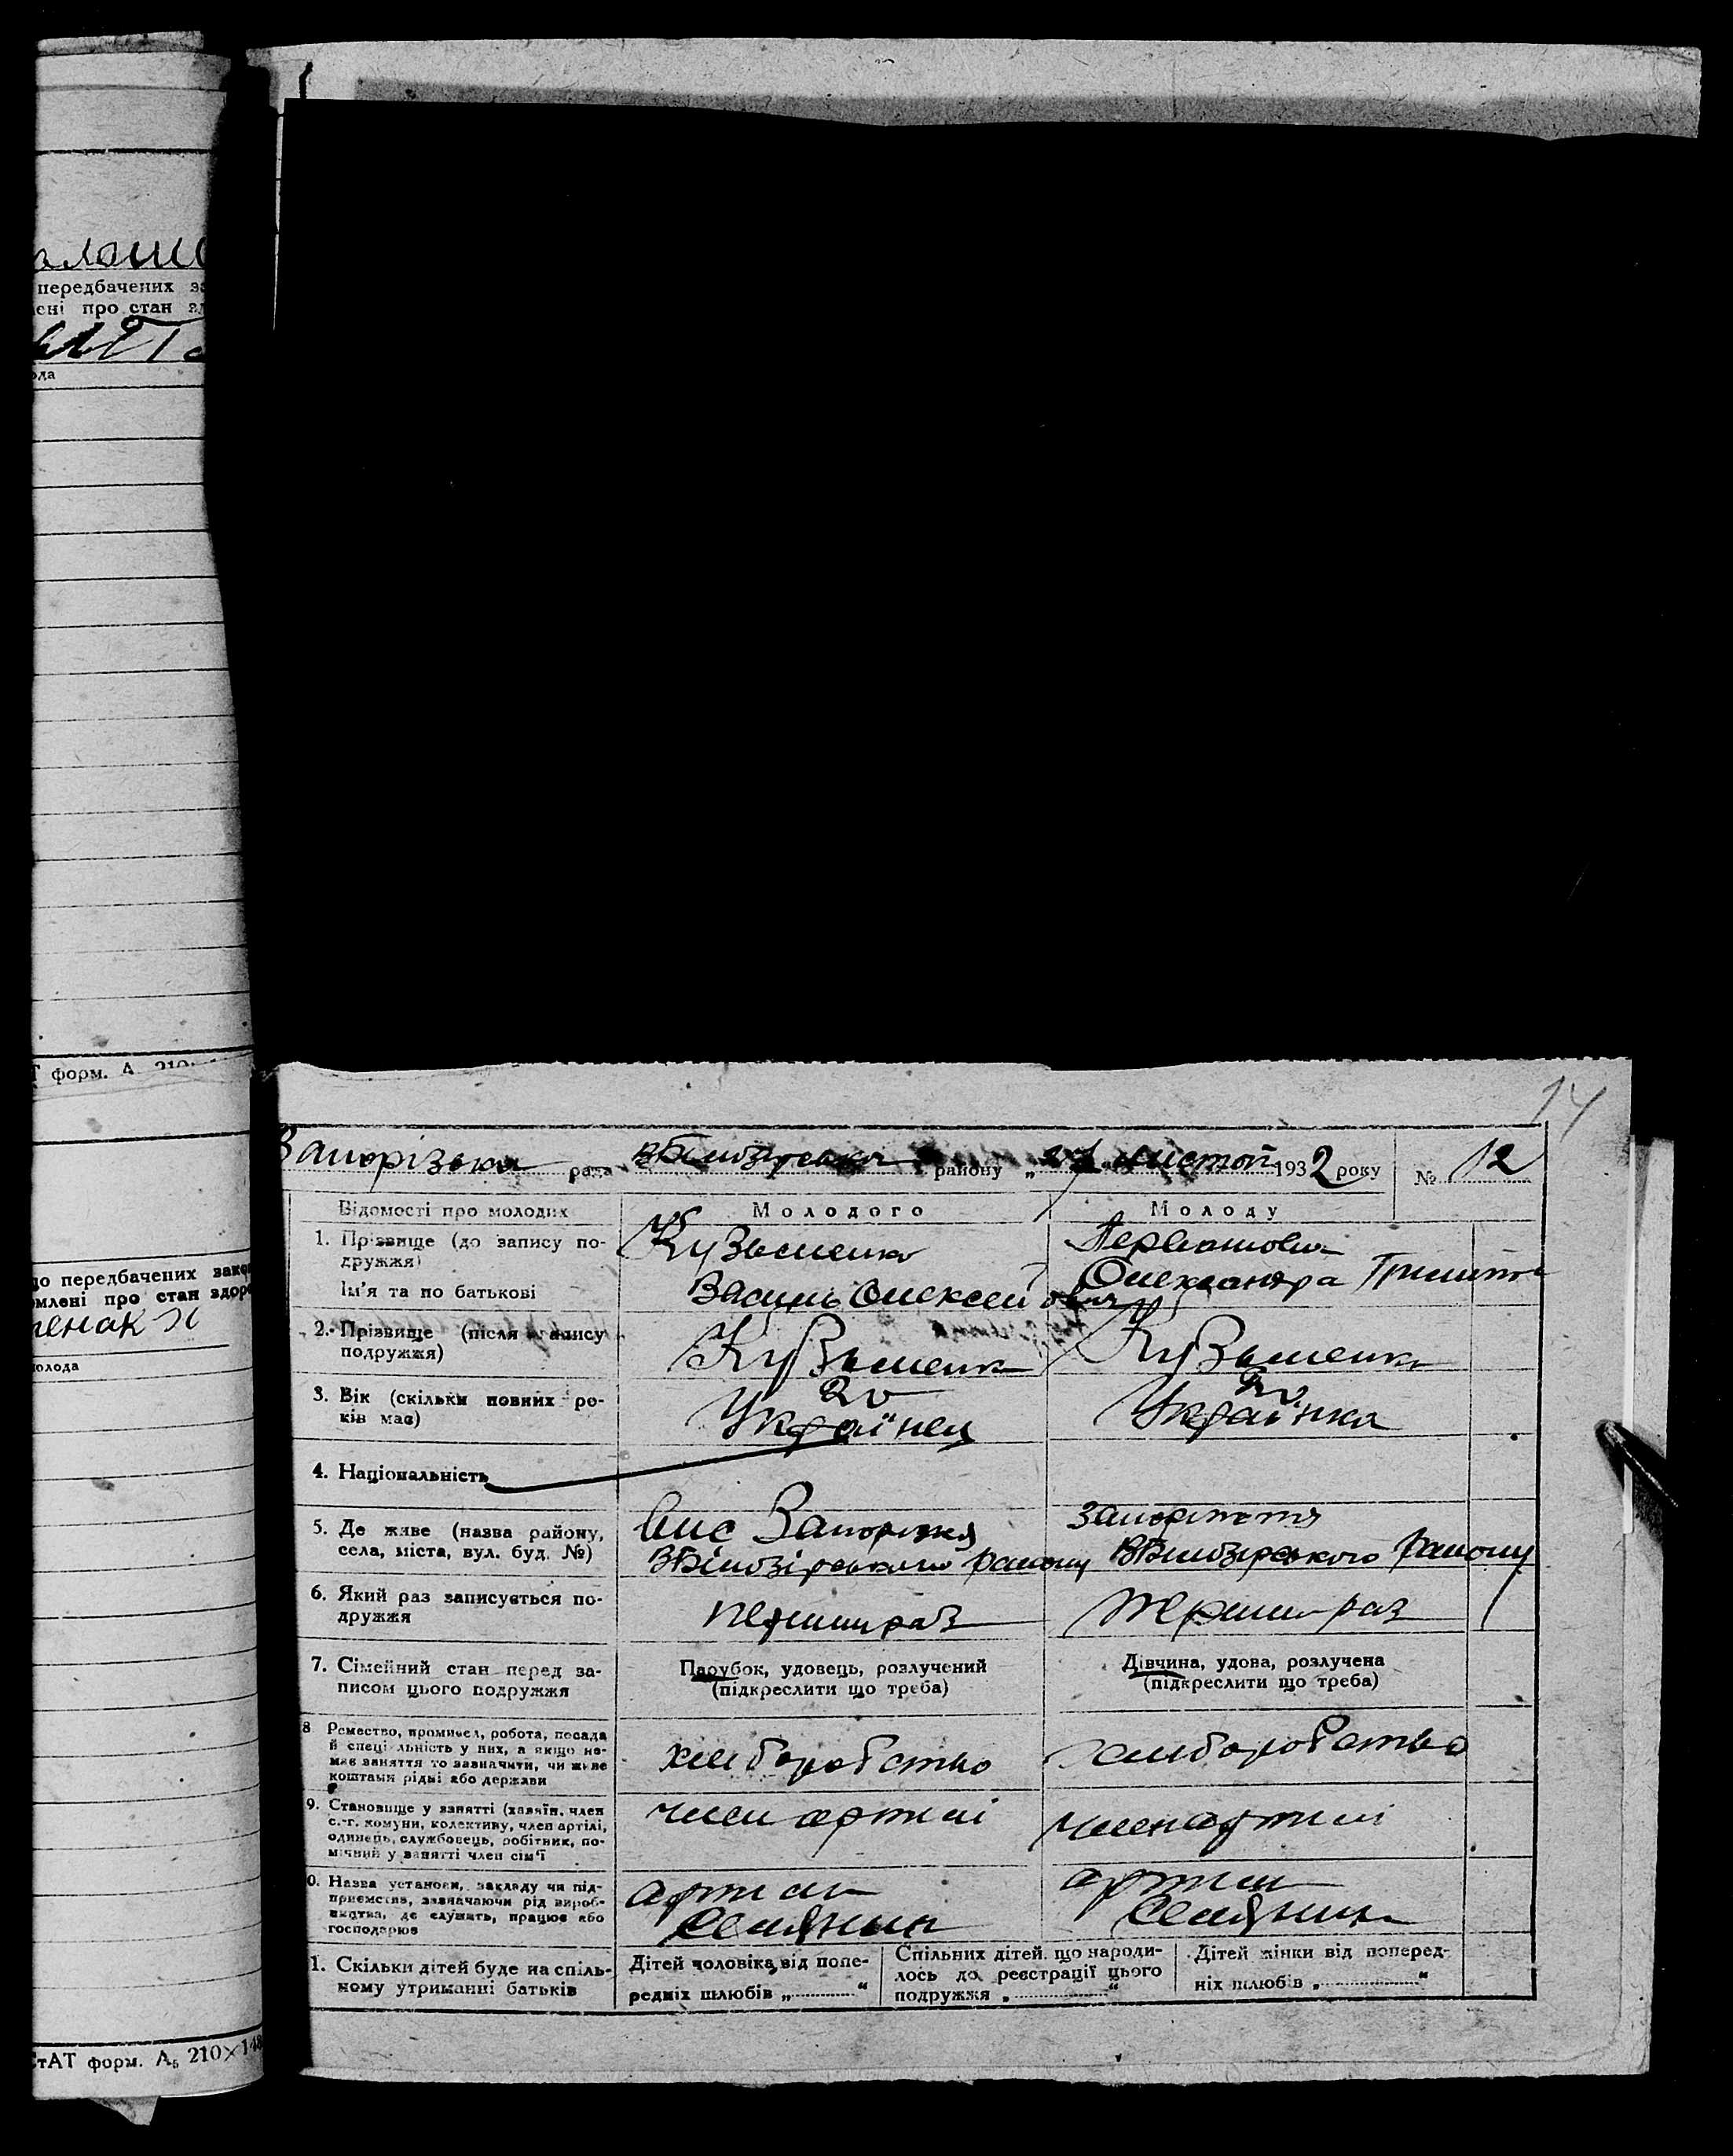 передбачених
про стан
ода
форм. А
передбачених
про стан
молода
форм. А₅ 210×148
14
Запорізька рада району „27 листоп 1932 року № 12
Відомості про молодих Молодого Молоду
1. Прізвище (до запису по-
дружжя)
Кузьменко
Ім'я та по батькові
Василь Олексейович Олександра
2. Прізвище (після запису
подружжя)
Кузьменко Кузьменко
3. Вік (скільки повних ро-
ків має)
20 20
Українец Українка
4. Національність
5. Де живе (назва району,
села, міста, вул. буд. №)
Запоріжжя
району району
6. Який раз записується по-
дружжя
перший раз перший раз
7. Сімейний стан перед за-
писом цього подружжя
Парубок, удовець, розлучений
(підкреслити що треба)
Дівчина, удова, розлучена
(підкреслити що треба)
8 Ремество, промисел, робота, посада
й спеціальність у них, а якщо не-
має заняття то зазначити, чи живе
коштами рідні або держави
хлиборобство хлиборобство
9. Становище у занятті (хазяїн, член
с.-г. комуни, колективу, член артілі,
одинець, службовець, робітник, по-
мічний у занятті член сім'ї
член артилі член артилі
0. Назва установи, закладу чи під-
приємства, зазначаючи рід вироб-
ництва, де служить, працює або
господарює
артил артил
Селянин Селянин
1. Скільки дітей буде на спіль-
ному утриманні батьків
Дітей чоловіка від попе-
редніх шлюбів „ “
Спільних дітей, що народи-
лось до реєстрації цього
подружжя „ “
Дітей жінки від поперед-
ніх шлюбів „ “